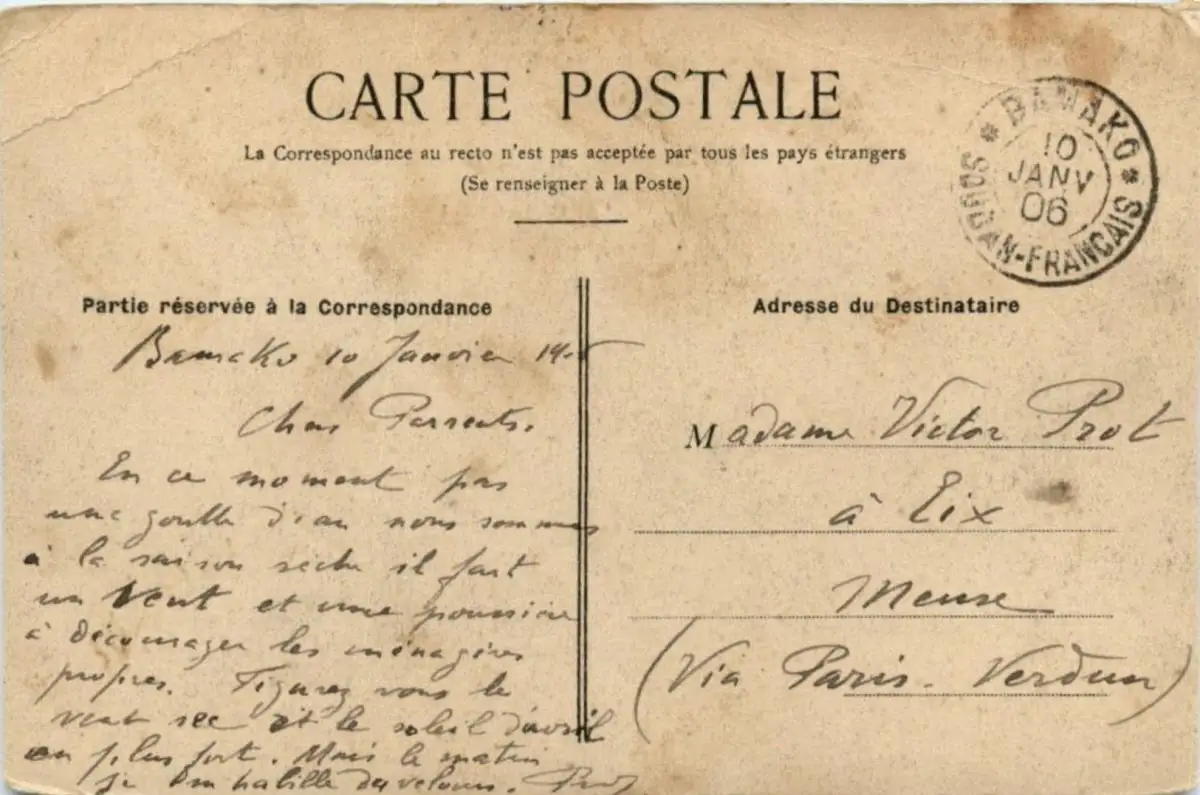 CARTE POSTALE
La Correspondance au recto n'est pas acceptée par tous les pays étrangers
(Se renseigner à la Poste)
* BAMAKO *
10
JANV
06
SOUDAN-FRANCAIS
Partie réservée à la Correspondance
Bamako 10 Janvier
Chers Parrents.
En ce moment pas
une goutte d'eau nous sommes
à la saison sèche il fait
un vent et une poussière
à décourager les ménagères
propres. Figurez vous le
vent sec et le soleil d'avril
en plus fort. Mais le matin
je m'habille de velours. Prot
Adresse du Destinataire
Madame Victor Prot
à Eix
Meuse
(Via Paris. Verdun)